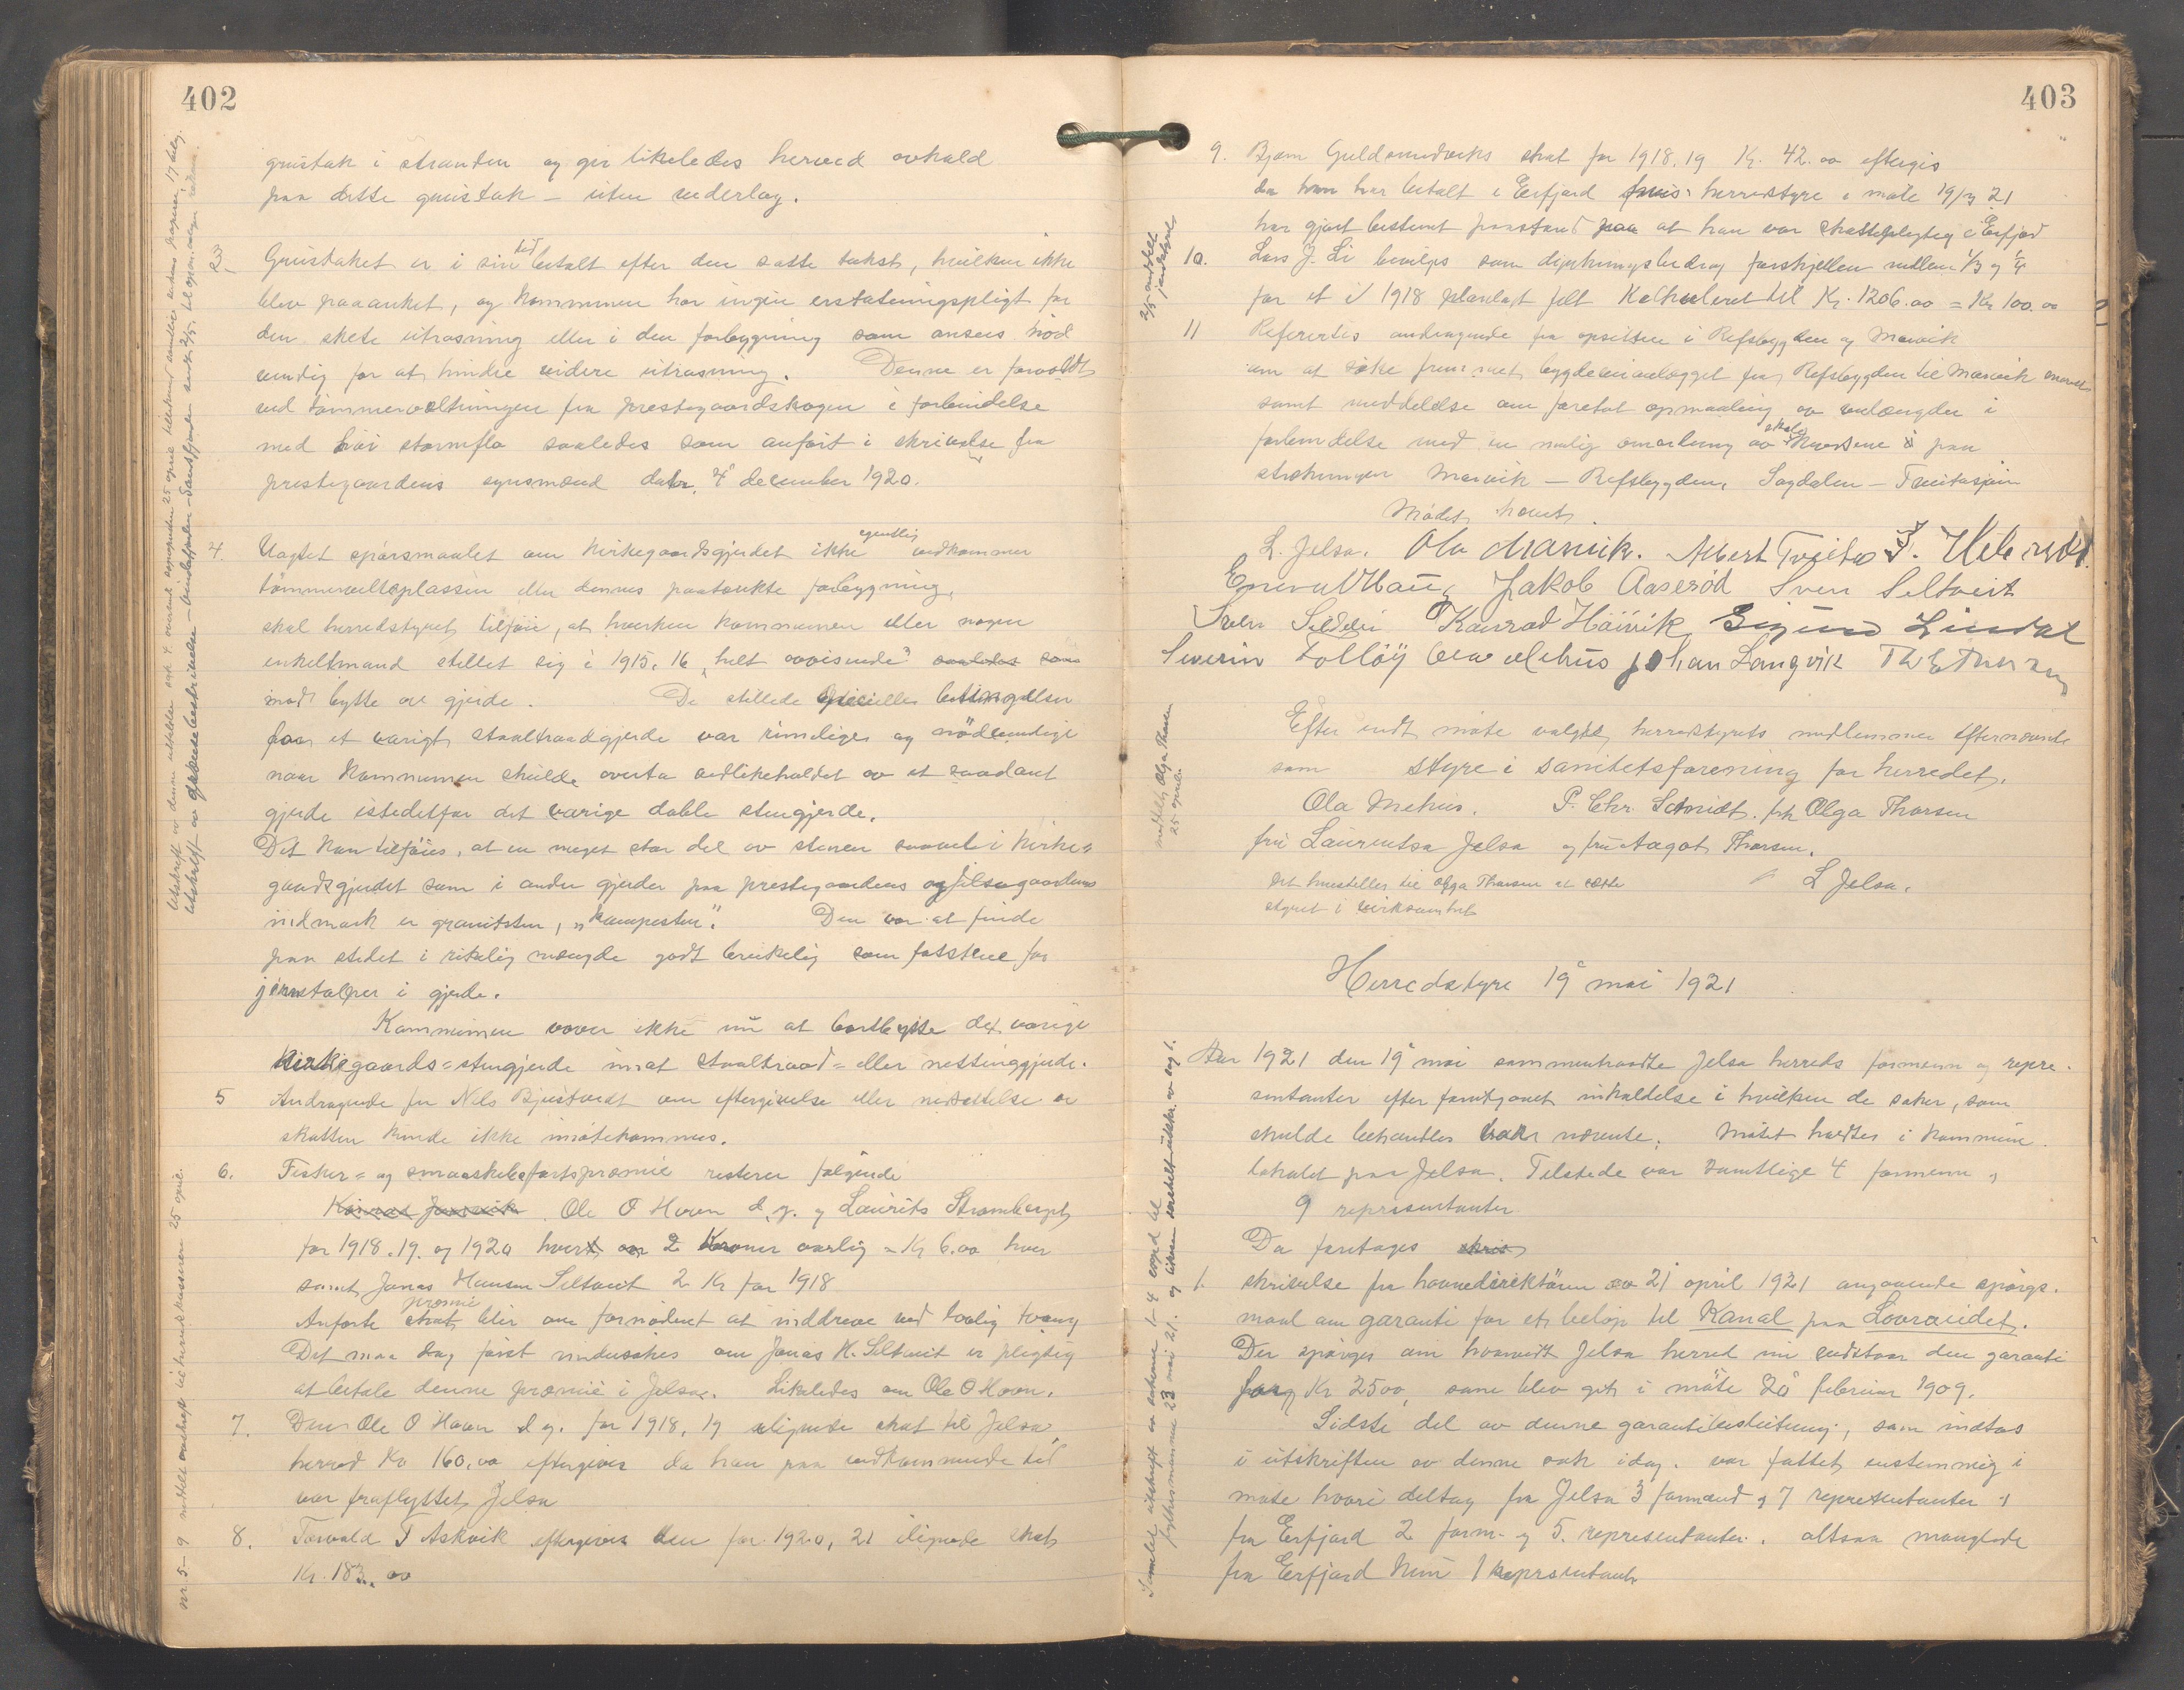 402
grustak i stranden og gir likeledes herved avkald
paa dette grustak – uten vederlag.
3. Grustaket er i sin tid betalt efter den satte takst, hvilken ikke
blev paaanket, og kommunen har ingen erstatningspligt for
den skete utrasning eller i den forbygning som ansees nød
vendig for at hindre videre utrasning. Denne er forvoldt
ved tømmervæltningen fra prestegaardskogen i forbindelse
med høi stormflo saaledes som anført i skrivelse fra
prestegaardens synsmænd datr. 4 december 1920.
4. Uagtet spørsmaalet om kirkegaardsgjerdet ikke egentlig vedkommer
tømmervelteplassen eller dennes paatænkte forbygning,
skal herredstyret tilføie, at hverken kommunen eller nogen
enkeltmand stillet sig i 1915, 16 „helt avvisende" saaledes som
mot bytte av gjerde. De stillede specielle betingelser
for et varigt staaltraadgjerde var rimelige og nødvendige
naar kommunen skulde overta vedlikeholdet av et saadant
gjerde istedetfor det varige doble stengjerde.
Det kan tilføies, at en meget stor del av stenen saavel i kirke=
gaardsgjerdet som i andre gjerder paa prestegaardens og Jelsagaardens
indmark er granitsten, „kampesten". Den var at finde
paa stedet i rikelig mængde godt brukelig som fotstene for
jernstolper i gjerde.
Kommunen vover ikke nu at bortbytte det varige
kirkegaards=stengjerde imot staaltraad= eller nettinggjerde.
5 Andragende fra Nels Bjustvedt om eftergivelse eller nedsettelse av
skatten kunde ikke imøtekommes.
6. Fisker= og smaaskibsfartspræmie resterer følgende
Ole O Hoven d. y. og Laurits Stromberget
for 1918, 19. og 1920 hver 2 kroner aarlig = Kr 6.00 hver
samt Jonas Hansen Seltveit 2 Kr for 1918
Anførte skat præmie blir om fornødent at inddreve ved lovlig tvang
Det maa dog først undersøkes om Jonas H. Seltveit er pligtig
at betale denne præmie i Jelsa. Likeledes om Ole O Hoven.
7. Den Ole O Hoven d y. for 1918, 19 ilignede skat til Jelsa
herred Kr 160,00 eftergives da han paa vedkommende tid
var fraflyttet Jelsa
8. Torvald T Askvik eftergives den for 1920, 21 ilignede skat
Kr. 183.00
403
9. Bjørn Guldsmedviks skat for 1918, 19 Kr. 42.00 eftergis
da han har betalt i Erfjord herredstyre i møte 19/3 21
har gjort bestemt paastand paa at han var skattepligtig i Erfjord
10. Lars J. Li bevilges som dyrkningsbidrag forskjellen mellem 1/3 og 1/4
for et i 1918 planlagt felt kalkuleret til Kr. 1206.00 = Kr 100.00
11 Refereres andragende fra opsittere i Refsbygden og Marvik
om at søke fremmet bygdeveianlægget fra Refsbygden til Marvik
samt meddelelse om foretat opmaaling av veilængder i
forbindelse med en mulig omordning av skyds i paa
strækningen Marvik – Refsbygden, Sagdalen – Tveitasjøen
Mødet hævet.
L. Jelsa. Ola Marvik. Albert Tveita
Jakob Aaserød Sven Seltveit
Konrad Høivik Sigurd Lindal
Severin Folløy Ola Mehus Johan Langvik
Efter endt møte valgte herredstyrets medlemmer efternævnte
som styre i sanitetsforening for herredet.
Ola Mehus. P. Chr. Schmidt. frk Olga Thorsen
fru Laurentsa Jelsa og fru Aagot Thorsen.
Det henstilles til Olga Thorsen at sætte
styret i virksomhet
L Jelsa.
Herredstyre 19 mai 1921
Aar 1921 den 19 mai sammentraadte Jelsa herreds formenn og repre-
sentanter efter forutgaaet indkaldelse i hvilken de saker, som
skulde behandles var nævnte. Møtet holdtes i kommune
lokalet paa Jelsa. Tilstede var samtlige 4 formenn,
9 representanter
Da foretages skriv
1. Skrivelse fra havnedirektøren av 21 april 1921 angaaende spørgs-
maal om garanti for et beløp til Kanal paa Lovraeidet.
Der spørges om hvorvidt Jelsa herred nu vedstaar den garanti
for Kr 2500, som blev git i møte 20 februar 1909.
Sidste del av denne garantibeslutning, som indtas
i utskriften av denne sak idag. var fattet enstemmig i
møte hvori deltog fra Jelsa 3 formænd og 7 representanter og
fra Erfjord 2 form. og 5. representanter. altsaa manglede
fra Erfjord kun 1 representant